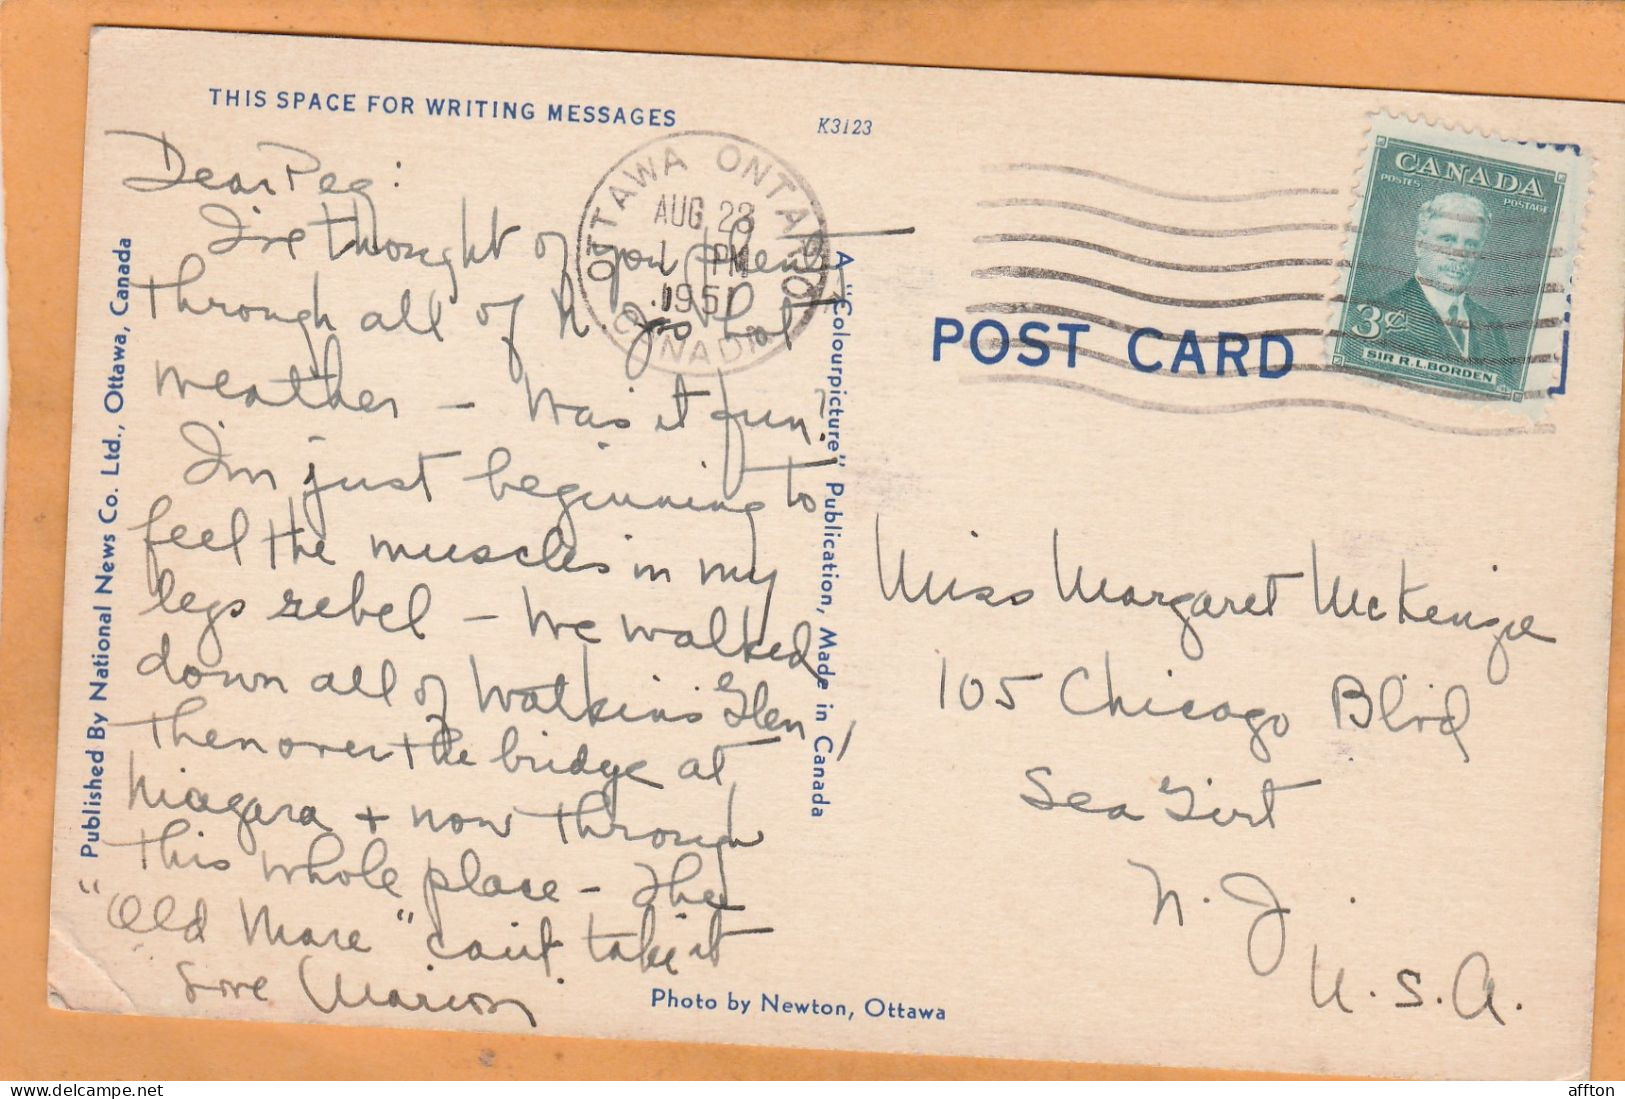 THIS SPACE FOR WRITING MESSAGES
K3123
Dear Peg:
I've thought of you
through all of N. J's hot
weather - Was it fun?
I'm just beginning to
feel the muscles in my
legs rebel - We walked
down all of Watkins Glen
then over the bridge at
Niagara + now through
this whole place - The
"Old Mare" can't take it
Love Marion
Published By National News Co. Ltd., Ottawa, Canada
A "Colourpicture" Publication, Made in Canada
Photo by Newton, Ottawa
OTTAWA ONTARIO
AUG 28
1 PM
1951
CANADA
POST CARD
CANADA
POSTES POSTAGE
3¢
SIR R.L.BORDEN
Miss Margaret McKenzie
105 Chicago Blvd
Sea Girt
N. J.
U. S. A.
affton